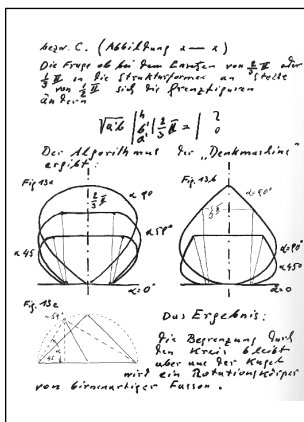 bezw. C. (Abbildung x — x)
Die Frage ob bei dem Einsetzen von 2/3 π oder
1/3 π in die Strukturformel an Stelle
von 1/2 π sich die Grenzfiguren
ändern
Der Algorithmus der „Denkmaschine"
ergibt:
Fig 13a
Fig. 13b
α 90
α=90°
2/3 π
1/3 π
α 59°
α 45
α=90°
α 45°
α=0°
α=0
Fig. 13c
α 59°
45
Das Ergebnis:
Die Begrenzung durch
den Kreis bleibt
aber aus der Kugel
wird ein Rotationskörper
von birnenartiger Fasson.